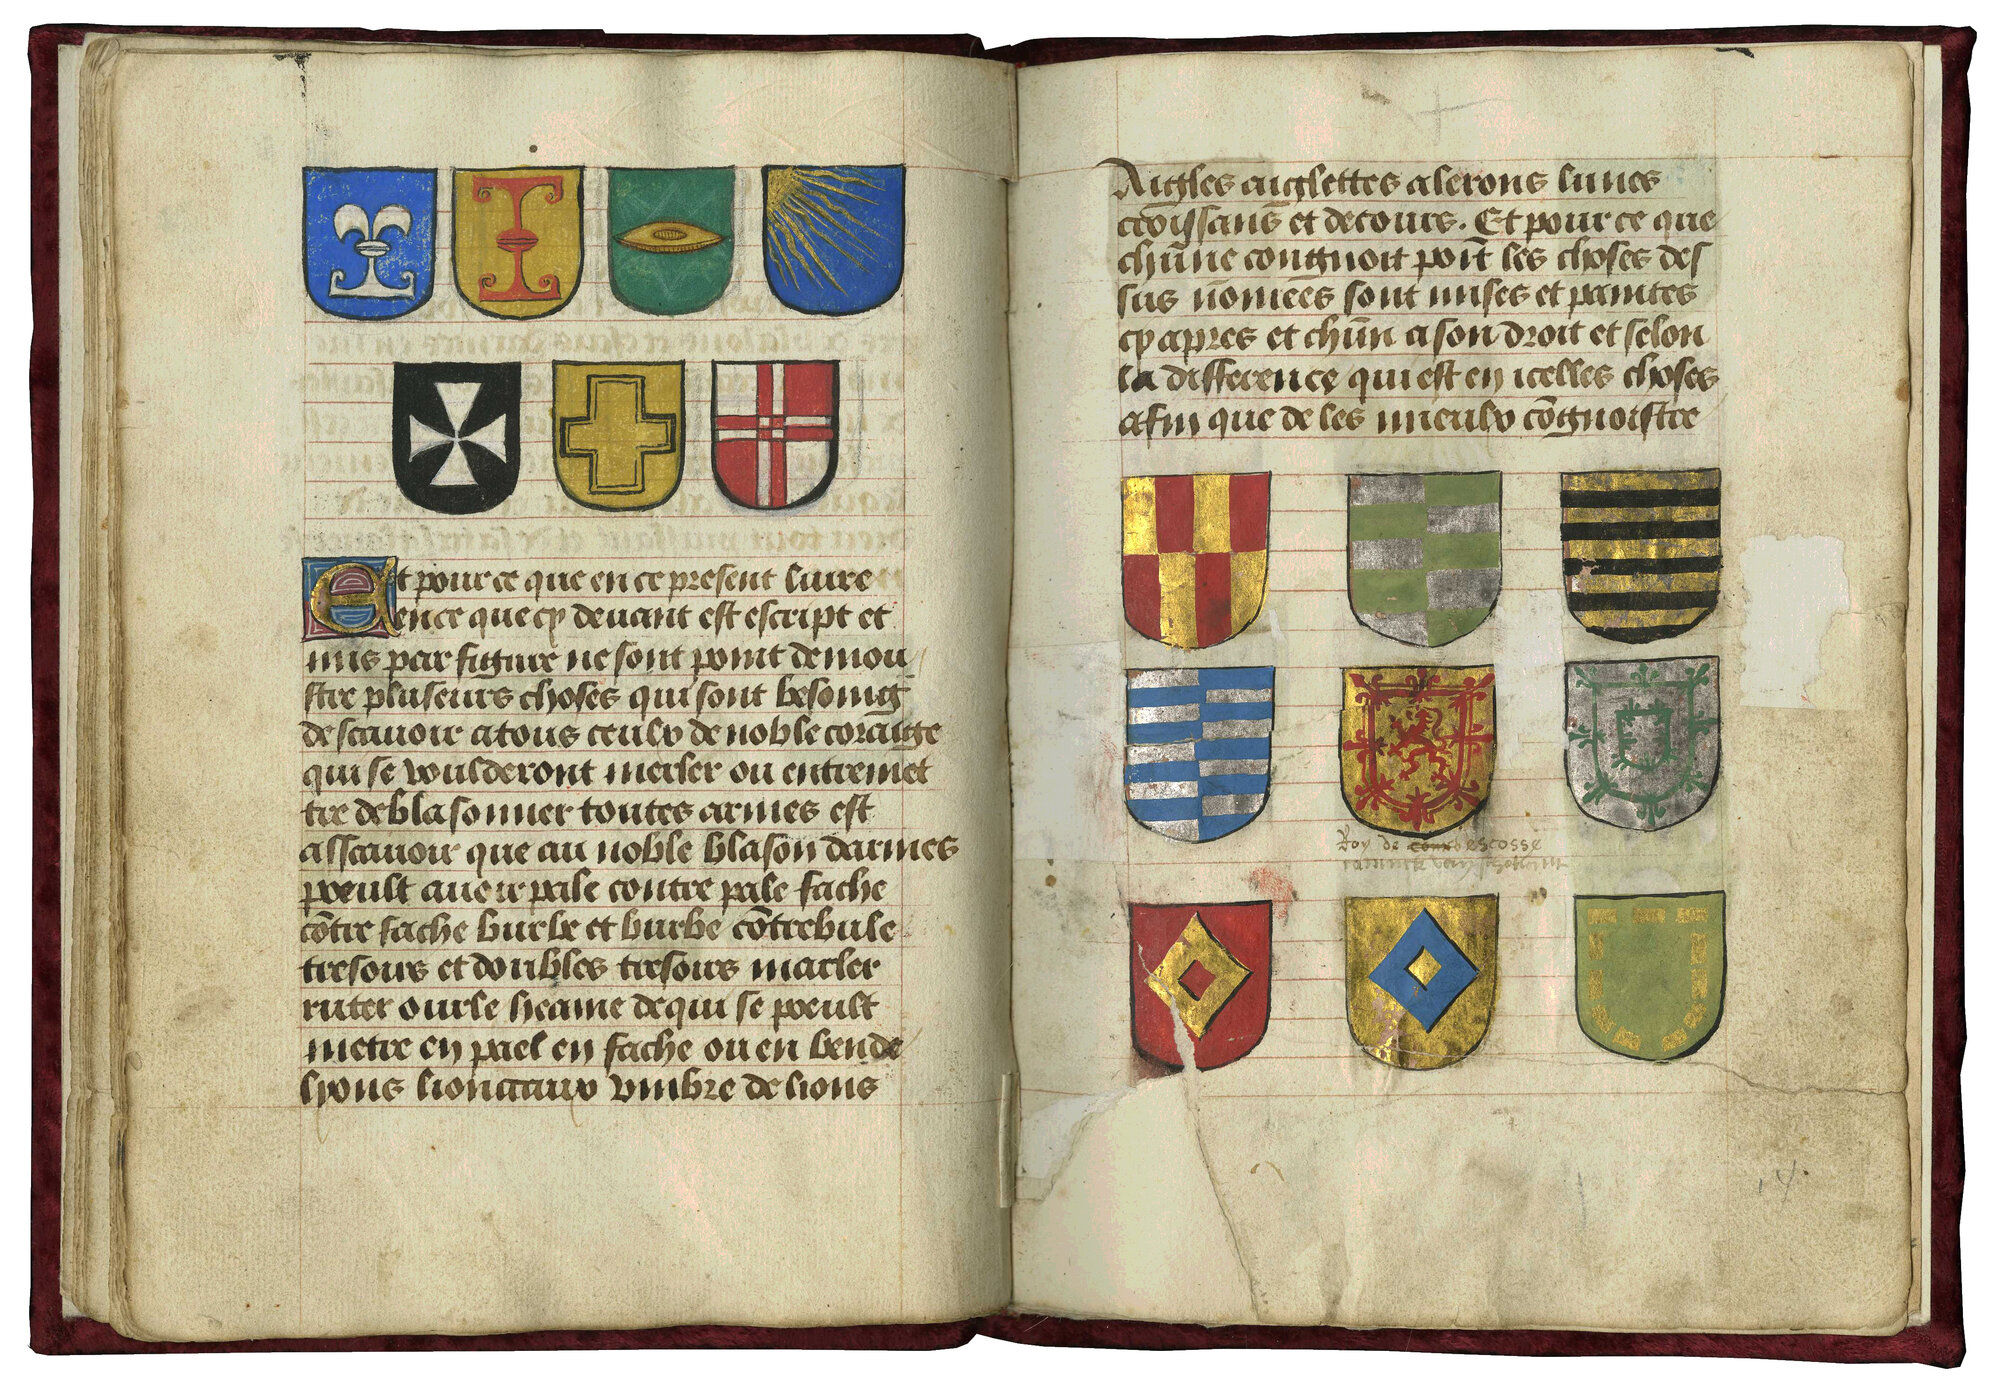 Et pour ce que en ce present livre
ence que cy devant est escript et
mis par figure ne sont point demou
stre pluseurs choses qui sont besoing
de scavoir a tous ceulx de noble coraige
qui se voulderont mesler ou entremet
tre de blasonner toutes armes est
assavoir que au noble blason darmes
poeult avoir pale contre pale fache
cōtre fache burle et burbe cōtrebule
tresours et doubles tresours macler
ruter ourle heame de qui se poeult
metre en pael en fache ou en bende
lyons lionceaux umbre de lions
Aigles aiglettes alerons lunes
croissans et decours. Et pour ce que
chūne congnoit poīt les choses des
sus nōmees sont mises et paintes
cy apres et chūn a son droit et selon
la difference qui est en icelles choses
afin que de les mieulx cōgnoistre
Roy de escosse